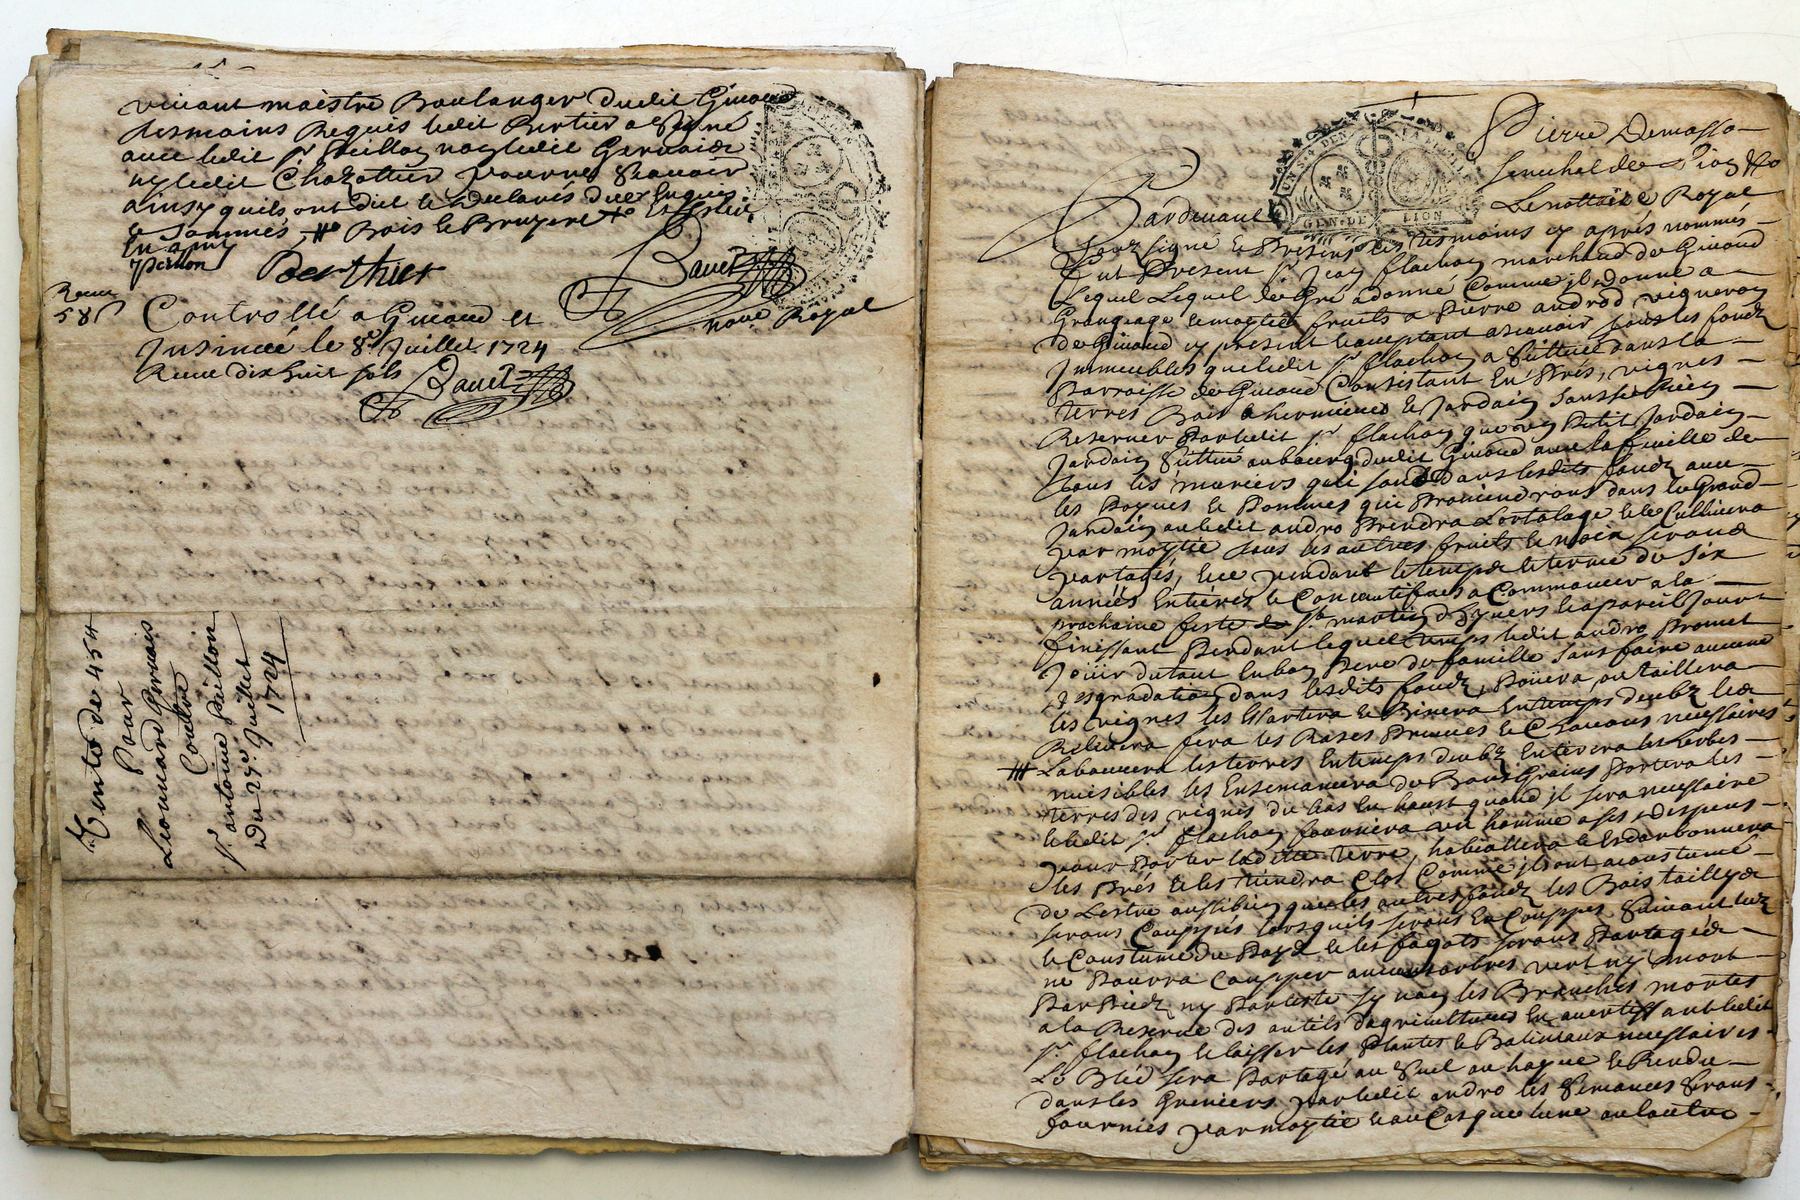 vivant maistre Boulanger dudit Givord
tesmoins Requis ledit Bertier a Signé
avec ledit Sr Peillon non ledit Gervais
ny ledit Chazottier pour ne Scavoir
ainsy quils ont dit et declarés de ce Enquis
et Sommés Bois le Bruyere
Peillon
Berthier
Bauet
notre Royal
Receu
58s
Controllé a Givord et
Insinué le 8e Juillet 1724
Receu dix huit sols
Bauet
Vente de 454
Pour
Leonnard Gervais
Contre
Sr antoine Peillon
Du 2e Juillet
1724
Pierre Demasso
Senechal de Lion
GEN DE LION
Pardevant Le nottaire Royal
Soubz signé et Presens les tesmoins cy aprés nommés
fut Present Sr Jean flachon marchand de Givord
Lequel Lequel de Gré a donné Comme il donne a
Grangeage et moytié fruits a Pierre androd vigneron
de Givord cy present acceptant ascavoir tous les fondz
Immeubles que ledit Sr flachon a Scittué dans la
Parroisse de Givord Consistant En Prés, vignes
terres Bois hermieres et Jardain Sans se Rien
Reserver Par ledit Sr flachon que un Petit Jardain
Jardain Scittué au bourg dudit Givord avec la feuille de
tous les muriers qui sont dans lesdits fondz avec
les Poyres et Pommes qui Proviendrons dans le Grand
Jardain ou ledit andro Prendra Lortolage et le Cultivera
par moytié tous les autres fruits et noix seront
partagés, Ce pendant le temps et terme de Six
années Entiéres et Consecutifves a Commancer a la
prochaine feste de St martin d'hyvers et a pareil Jour
finissant Pendant lequel temps ledit andro Promet
Joüir du tout En bon Pere de famille sans faire aucune
degradation dans lesdits fondz, Poüera ou taillera
les vignes les Essartera et Binera En temps deubz et
Relevera fera les Rases Prouves et Chavons necessaires
Labourera les terres En temps deubz Enlevera les herbes
nuisibles les Ensemancera de Bons Grains Portera les
terres des vignes du bas En haut quand il sera necessaire
et ledit Sr flachon fournira un homme a ses despens
pour Porter ladite terre, et Esdarbonnera
les Prés et les tiendra Clos Comme ils ont acoustumé
de Lestre aussi bien que les autres fondz les Bois taillys
serons Couppés lorsquils serons En Couppes Suivant
la Coustume du Pays et les fagots serons Partagés
ne Pourra Coupper aucuns arbres vert ny mort
Par Pied ny Par teste sy non les Branches mortes
a la Reserve des outils dagriculture En avertissant ledit
Sr flachon et laisser les Plantes et Balivaux necessaires
Le Bled sera Partagé au Suel et Rendu
dans les Greniers par ledit andro les Semances Serons
fournies par moytié et au Cas que lune ou lautre